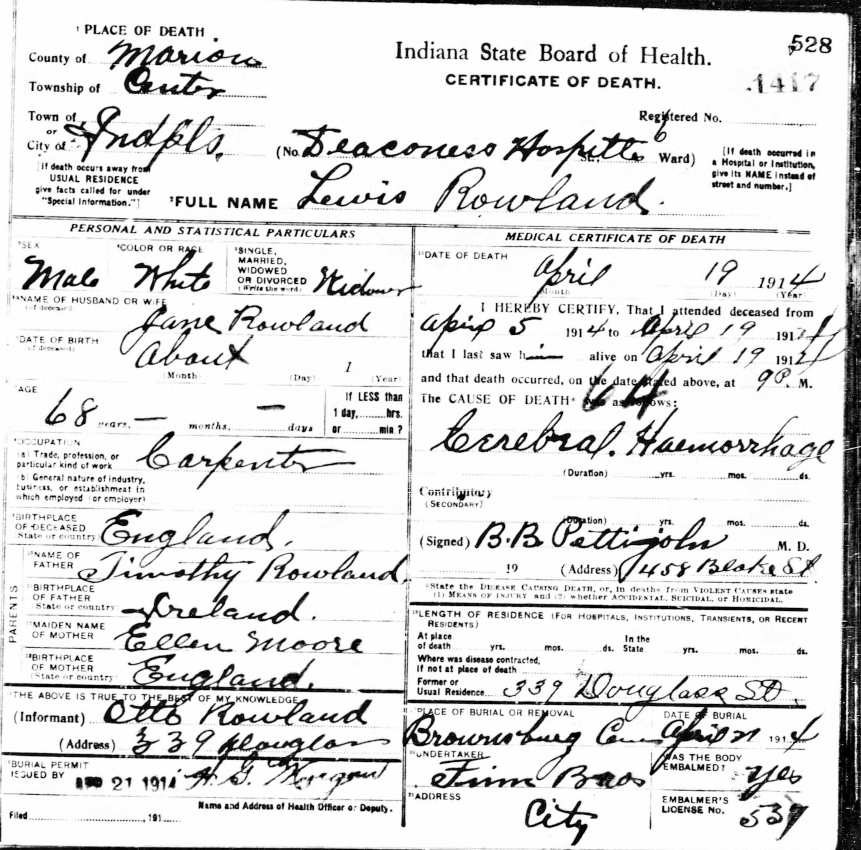 528
1417
Indiana State Board of Health.
CERTIFICATE OF DEATH.
PLACE OF DEATH
County of Marion
Township of Center
Town of
or
City of Indpls.
Registered No.
(No. Deaconess Hospital St. 6 Ward)
[If death occurs away from USUAL RESIDENCE give facts called for under "Special Information."]
[If death occurred in a Hospital or Institution, give its NAME instead of street and number.]
FULL NAME Lewis Rowland.
PERSONAL AND STATISTICAL PARTICULARS
SEX
Male
COLOR OR RACE
White
SINGLE, MARRIED, WIDOWED OR DIVORCED
(Write the word)
Widower
NAME OF HUSBAND OR WIFE
(of deceased)
Jane Rowland
DATE OF BIRTH
(of deceased)
About 1
(Month) (Day) (Year)
AGE
68 years, — months, — days
If LESS than
1 day, hrs.
or min?
OCCUPATION
(a) Trade, profession, or particular kind of work
Carpenter
(b) General nature of industry, business, or establishment in which employed (or employer)
BIRTHPLACE OF DECEASED
State or country
England.
PARENTS
NAME OF FATHER
Timothy Rowland
BIRTHPLACE OF FATHER
State or country
Ireland.
MAIDEN NAME OF MOTHER
Ellen Moore
BIRTHPLACE OF MOTHER
(State or country)
England.
THE ABOVE IS TRUE TO THE BEST OF MY KNOWLEDGE
(Informant) Otto Rowland
(Address) 339 Douglass
BURIAL PERMIT ISSUED BY
21 1914
Name and Address of Health Officer or Deputy.
Filed 191
MEDICAL CERTIFICATE OF DEATH
DATE OF DEATH
April 19 1914
Month (Day) (Year)
I HEREBY CERTIFY, That I attended deceased from
April 5 1914 to April 19 1914
that I last saw him alive on April 19 1914
and that death occurred, on the date stated above, at 9 P. M.
The CAUSE OF DEATH* was as follows:
64
Cerebral Haemorrhage
(Duration) yrs. mos. ds.
Contributory
(SECONDARY)
(Duration) yrs. mos. ds.
(Signed) B.B. Pettijohn M. D.
19 (Address) 1458 Blake St.
*State the DISEASE CAUSING DEATH, or, in deaths from VIOLENT CAUSES state (1) MEANS OF INJURY and (2) whether ACCIDENTAL, SUICIDAL, or HOMICIDAL.
LENGTH OF RESIDENCE (FOR HOSPITALS, INSTITUTIONS, TRANSIENTS, OR RECENT RESIDENTS)
At place of death yrs. mos. ds. In the State yrs. mos. ds.
Where was disease contracted, if not at place of death
Former or Usual Residence 339 Douglass St.
PLACE OF BURIAL OR REMOVAL
Brownsburg Cem
DATE OF BURIAL
April 21 1914
UNDERTAKER
Finn Bros
WAS THE BODY EMBALMED? Yes
ADDRESS
City
EMBALMER'S LICENSE No. 537